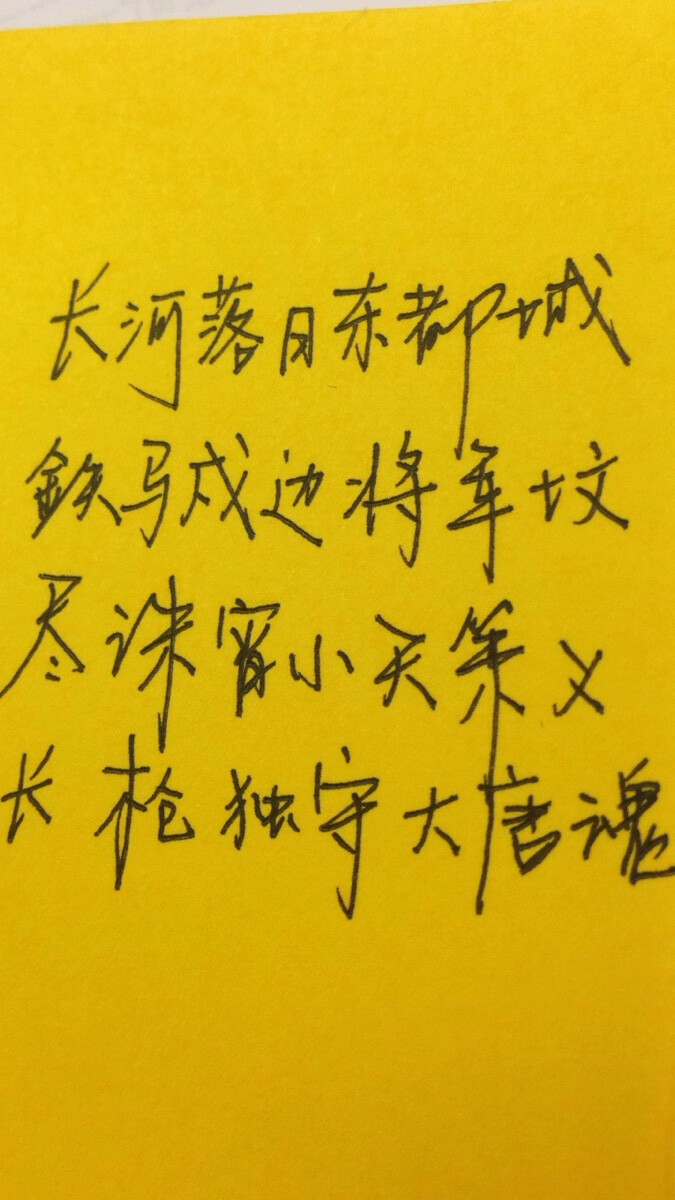 长河落日东都城
鉄马戍边将军坟
尽诛宵小天策义
长枪独守大唐魂